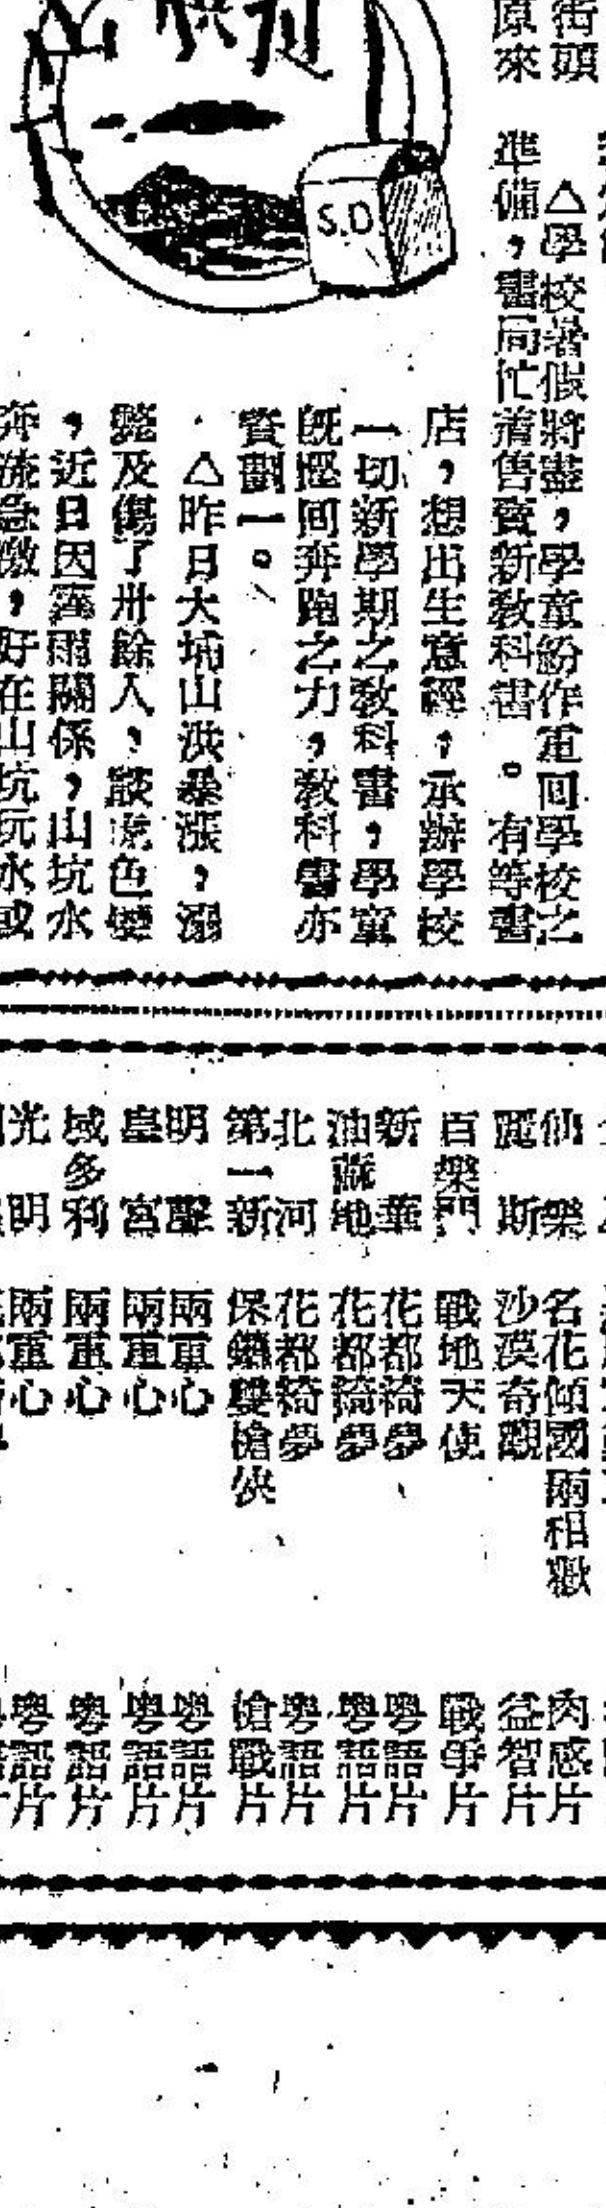 街頭
原來
△學校暑假將盡,學童紛作重回學校之
準備,書局忙着售賣新教科書。有等書
店,想出生意經,承辦學校
一切新學期之教科書,學童
旣慳回奔跑之力,教科書亦
資劃一。
△昨日大埔山洪暴漲,溺
斃及傷了卅餘人,談虎色變
,近日因霪雨關係,山坑水
奔流急激,好在山坑玩水或
S.D
仙樂 名花傾國兩相歡 肉感片
麗斯 沙漠奇觀 益智片
百樂門 戰地天使 戰爭片
新華 花都綺夢 粵語片
油蔴地 花都綺夢 粵語片
北河 花都綺夢 粵語片
第一新 保鑣雙槍俠 槍戰片
明聲 兩重心 粵語片
皇宮 兩重心 粵語片
域多利 兩重心 粵語片
光明 兩重心 粵語片